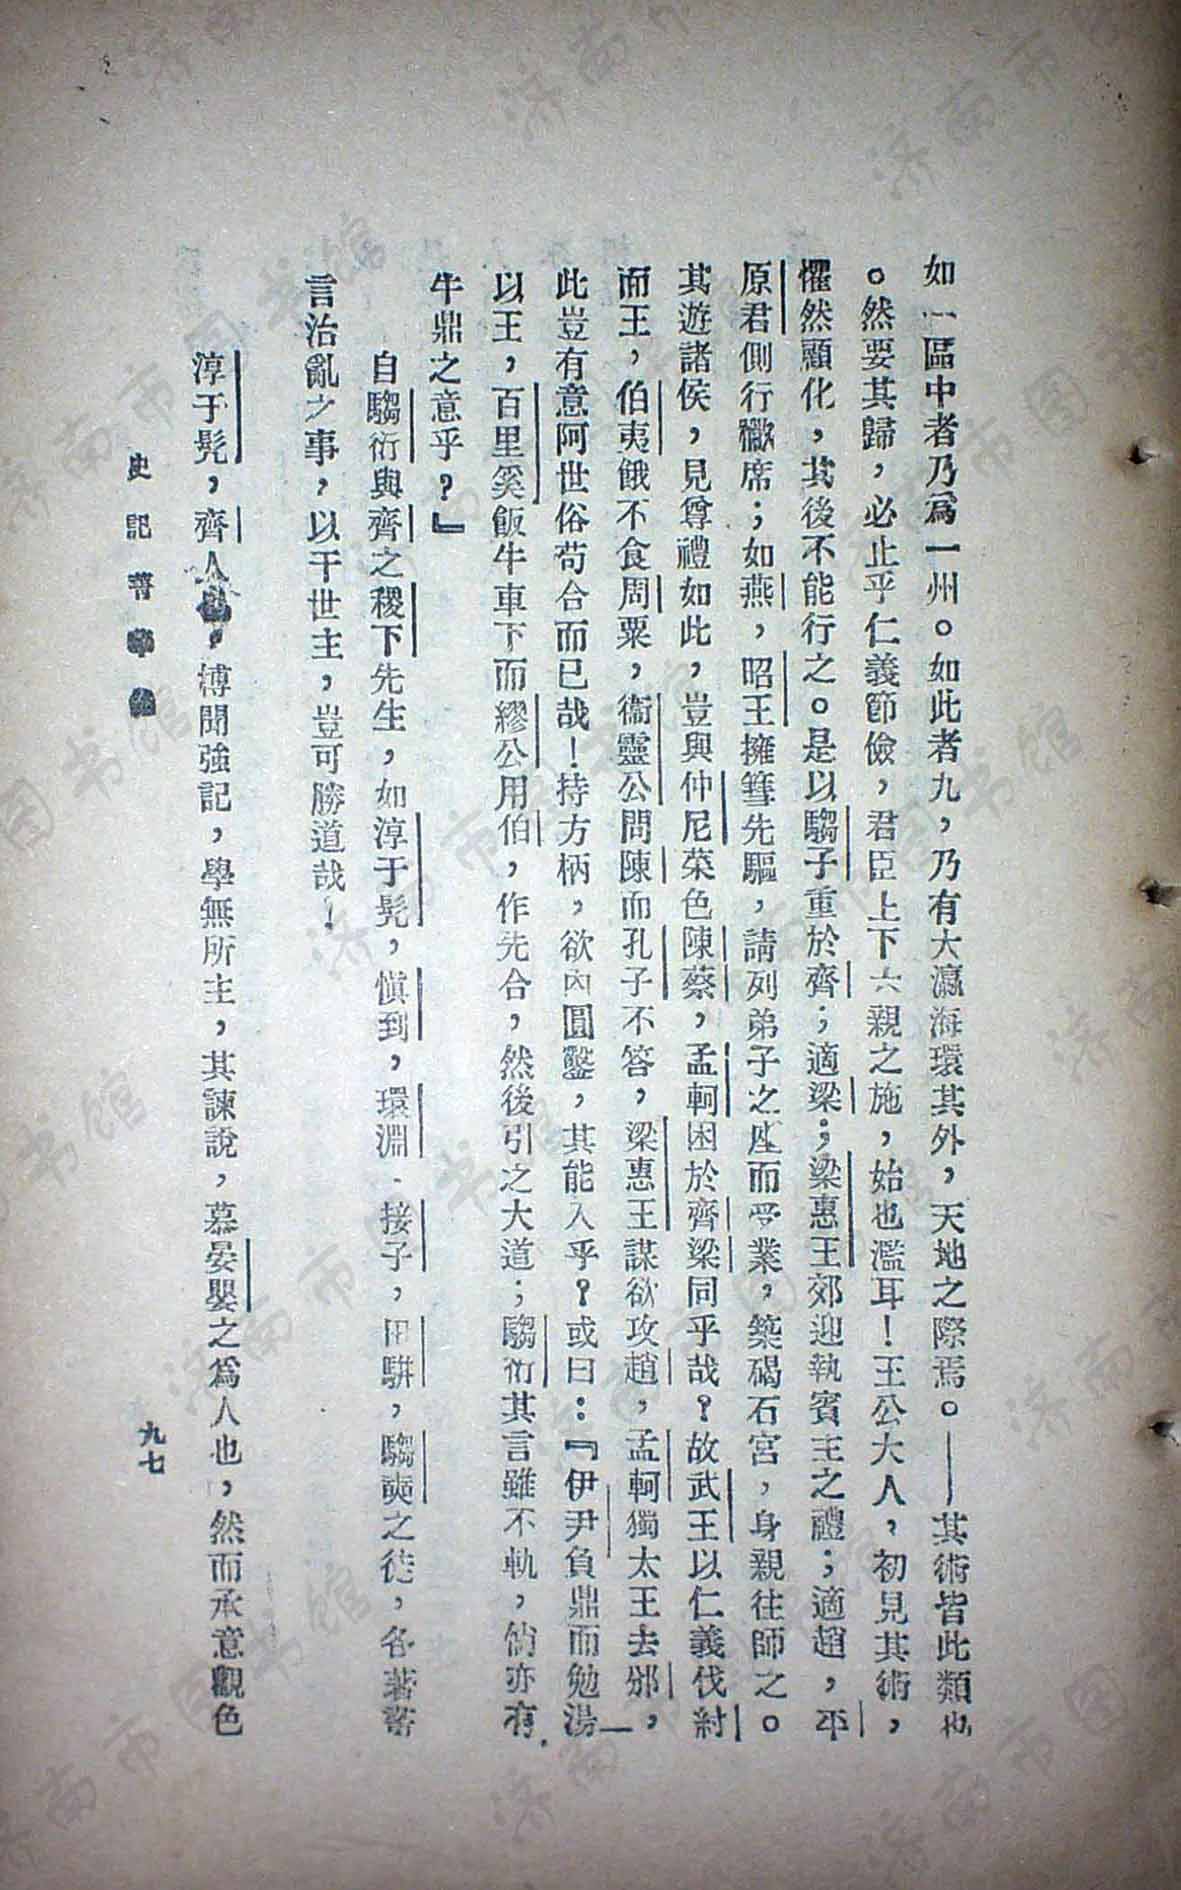 如一區中者乃爲一州。如此者九，乃有大瀛海環其外，天地之際焉。——其術皆此類也
。然要其歸，必止乎仁義節儉，君臣上下六親之施，始也濫耳！王公大人，初見其術，
懼然顧化，其後不能行之。是以騶子重於齊；適梁；梁惠王郊迎執賓主之禮；適趙，平
原君側行襒席；如燕，昭王擁篲先驅，請列弟子之座而受業，築碣石宮，身親往師之。
其遊諸侯，見尊禮如此，豈與仲尼菜色陳蔡，孟軻困於齊梁同乎哉？故武王以仁義伐紂
而王，伯夷餓不食周粟，衞靈公問陳而孔子不答，梁惠王謀欲攻趙，孟軻獨太王去邠，
此豈有意阿世俗苟合而已哉！持方柄，欲內圓鑿，其能入乎？或曰：『伊尹負鼎而勉湯
以王，百里奚飯牛車下而繆公用伯，作先合，然後引之大道；騶衍其言雖不軌，儻亦有
牛鼎之意乎？』
自騶衍與齊之稷下先生，如淳于髡，愼到，環淵，接子，田駢，騶奭之徒，各著書
言治亂之事，以干世主，豈可勝道哉！
淳于髡，齊人，博聞強記，學無所主，其諫說，慕晏嬰之爲人也，然而承意觀色
史記菁華
九七
济南市图书馆